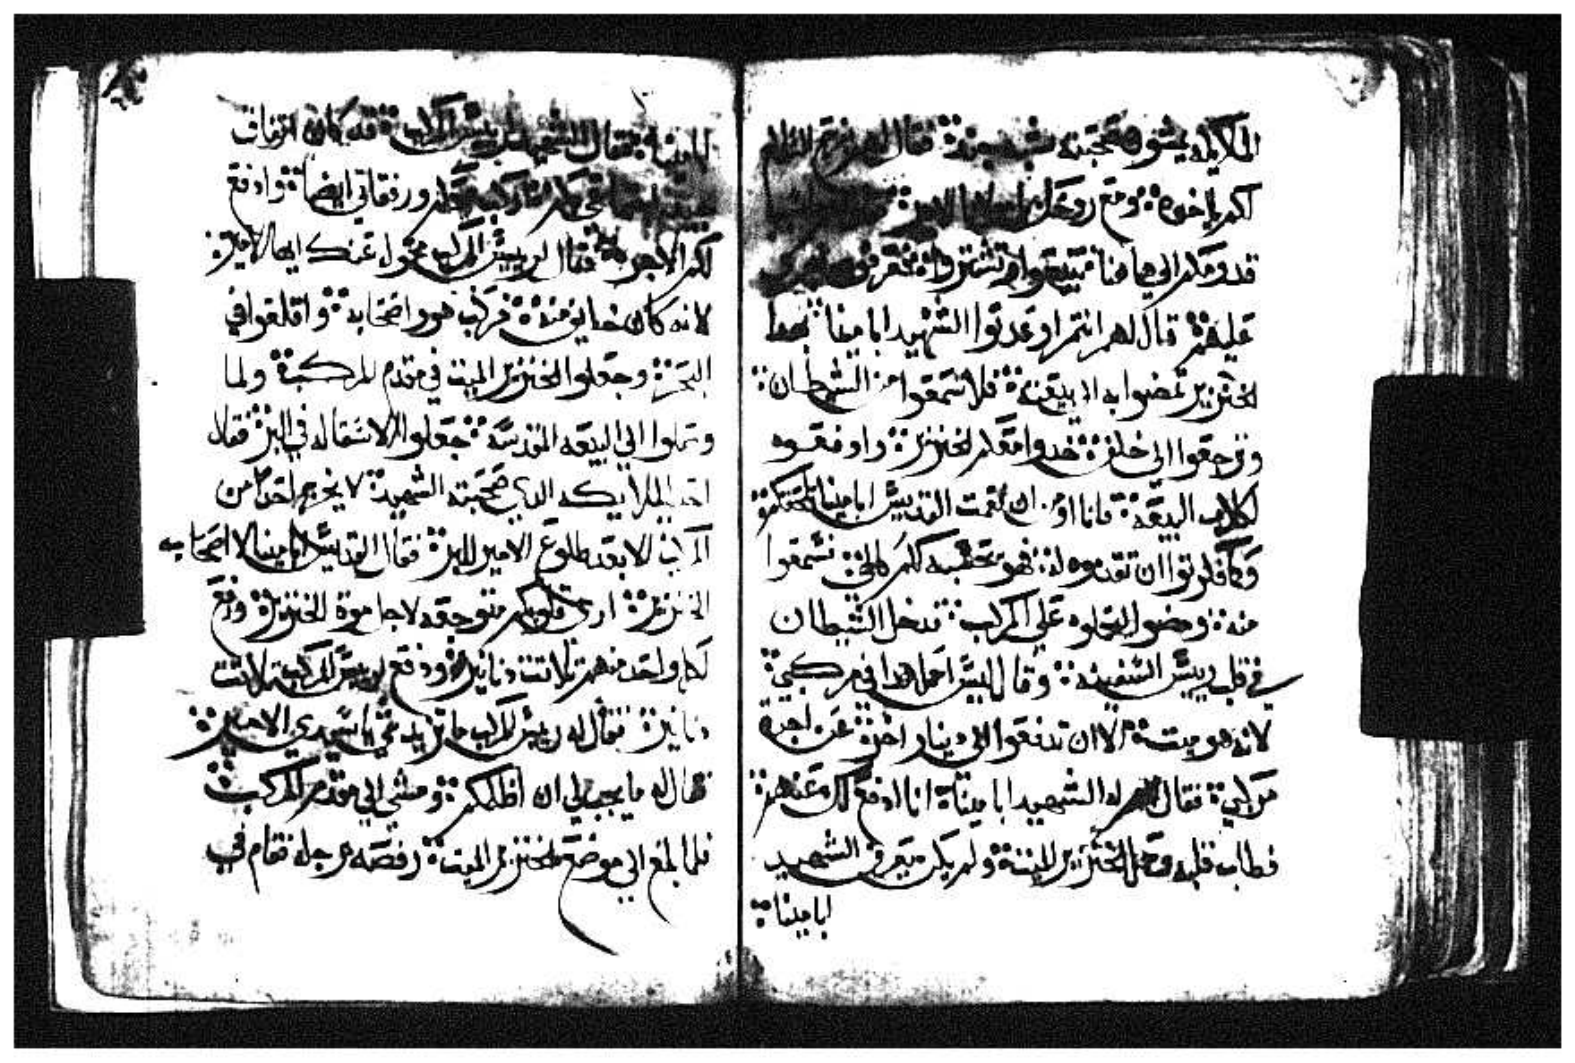 الملايكه يمشوا صحبته فقال لهم نرجع السلام
لكم يا خوه ومع روحكم
قد ومكم الي هاهنا تبيعوا ام تشتروا
عليهم قال لهم انتم اوعدتوا الشهيد ابا مينا بهدا
الخنزير تمضوا به الي بيعته فلا تسمعوا من الشيطان
وترجعوا الي خلف خدوا معكم الخنزير وادفعوه
لكلاب البيعه فانا اومن ان نعمت القديس ابا مينا تلحقكم
وكما قلتوا ان تقدموه له فهو يحسبه لكم كالحي نسمعوا
منه ومضوا ليحملوه علي المركب فدخل الشيطان
في قلب رييس السفينه وقال ليس احمل هدا في مركبي
لانه هو ميت الا ان تدفعوا الي دينار اخر عن اجرة
مركبي فقال له الشهيد ابا مينا انا ادفع لك عنهم
فطاب قلبه وحمل الخنزير الميت ولم يكن يعرف الشهيد
ابا مينا
ابا مينا فقال الشهيد لرييس المركب قد كان اتفاق
ورفقاتي ايضا وادفع
لكم الاجره فقال له رييس المركب محمول عنك ايها الامير
لانه كان خايف منه فركب هو واصحابه واقلعوا في
البحر وجعلوا الخنزير الميت في مقدم المركب ولما
وصلوا الي البيعه المقدسه جعلوا الاسقاله في البر فقال
احد الملايكه الدي صحبته الشهيد لا يخرج احدا من
المركب الا بعد طلوع الامير للبر فقال القديس ابا مينا لاصحاب
الخنزير اري قلوبكم متوجعه لاجل موة الخنزير ودفع
لكل واحد منهم تلاتت دنانير ودفع لرييس المركب تلاتت
دنانير فقال له رييس المركب ما تريد مني يا سيدي الامير
فقال له ما يجب لي ان اظلمكم ومشي الي مقدم المركب
فلما بلغ الي موضع الخنزير الميت رفصه برجله فقام في